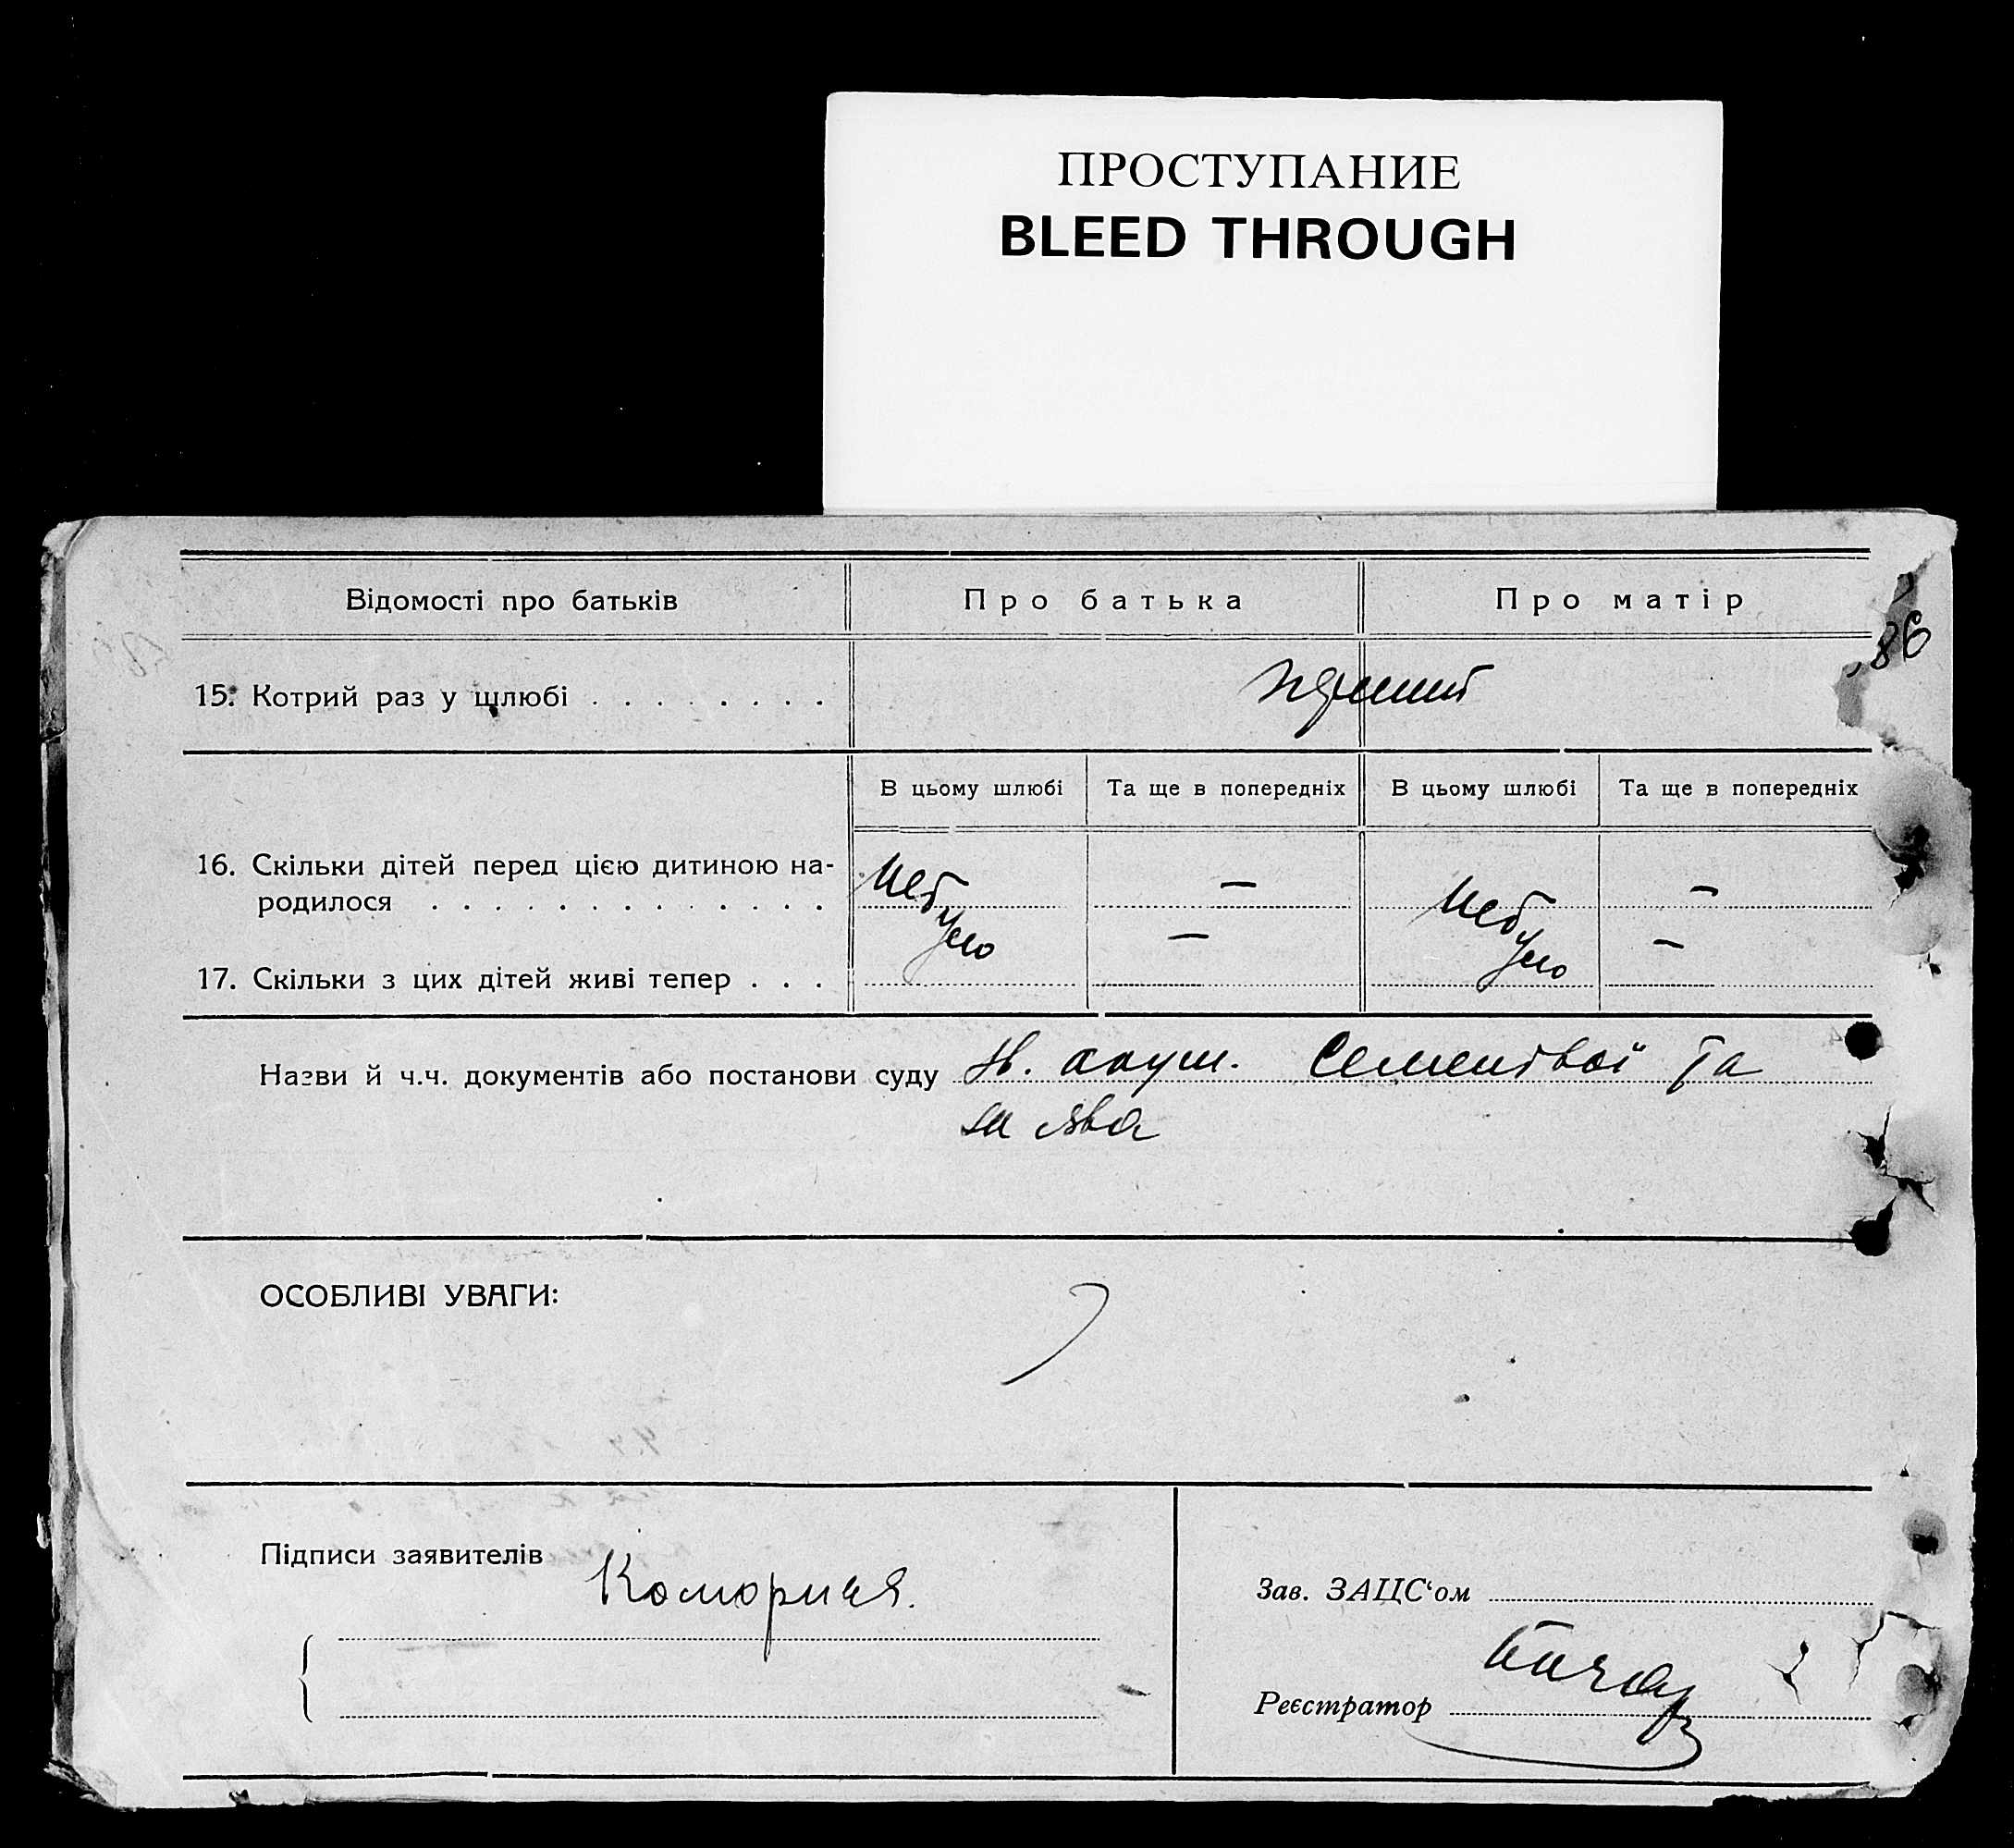 ПРОСТУПАНИЕ
BLEED THROUGH
Відомості про батьків Про батька Про матір
86
15. Котрий раз у шлюбі . . . . . . . .
В цьому шлюбі Та ще в попередніх В цьому шлюбі Та ще в попередніх
16. Скільки дітей перед цією дитиною на-
родилося . . . . . . . . . . . . . . небуло — небуло —
17. Скільки з цих дітей живі тепер . . . — —
Назви й ч.ч. документів або постанови суду акуш. Семенівої та
заява
ОСОБЛИВІ УВАГИ:
Підписи заявителів Коморная.
Зав. ЗАЦС‘ом
Реєстратор